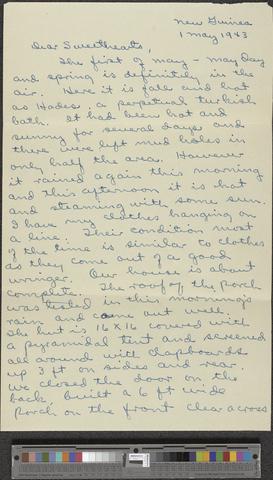 New Guinea
1 May 1943
Dear Sweethearts,
The first of May - May Day
and spring is definitely in the
air. Here it is fall and hot
as Hades, a perpetual turkish
bath. It had been hot and
sunny for several days and
there were left mud holes in
only half the area. However
it rained again this morning
and this afternoon it is hot
and steaming with some sun.
I have my clothes hanging on
a line. Their condition most
of the time is similar to clothes
as they come out of a good
wringer. Our house is about
complete. The roof of the porch
was tested in this morning's
rain and came out well.
The hut is 16 x 16 covered with
a pyramidal tent and screened
all around with clapboards
up 3 ft on sides and rear.
We closed the door on the
back, built a 6 ft wide
porch on the front clear across